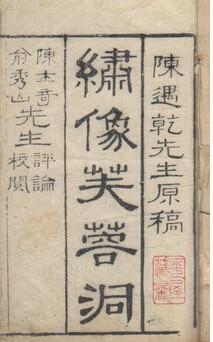 陳遇乾先生原稿
繡像芙蓉洞
陳士奇
俞秀山
先生
評論
校閱